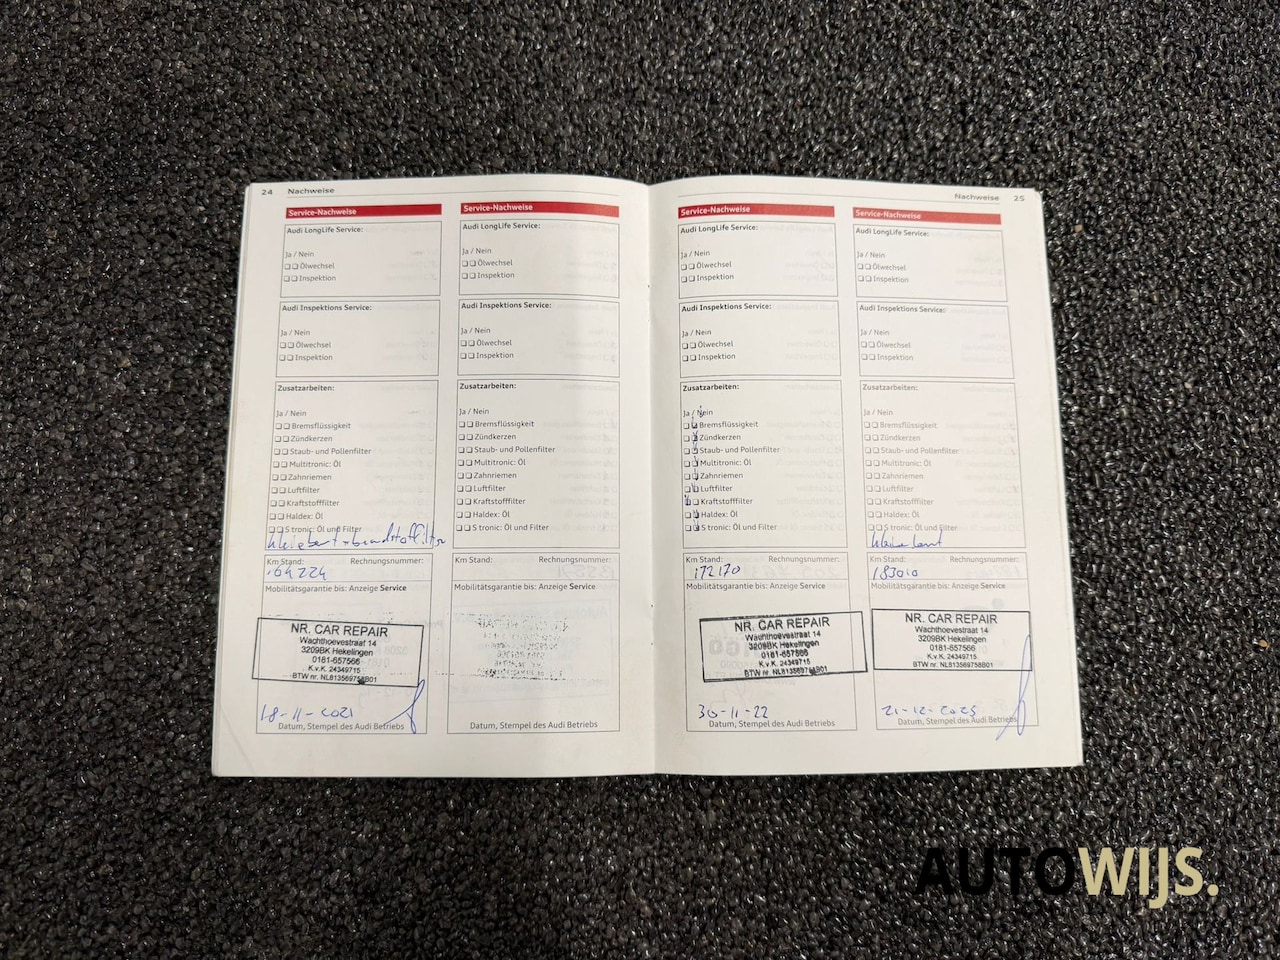 24 Nachweise
Service-Nachweise
Audi LongLife Service:
Ja / Nein
Ölwechsel
Inspektion
Audi Inspektions Service:
Ja / Nein
Ölwechsel
Inspektion
Zusatzarbeiten:
Ja / Nein
Bremsflüssigkeit
Zündkerzen
Staub- und Pollenfilter
Multitronic: Öl
Zahnriemen
Luftfilter
Kraftstofffilter
Haldex: Öl
S tronic: Öl und Filter
Km Stand: Rechnungsnummer:
Mobilitätsgarantie bis: Anzeige Service
NR. CAR REPAIR
Wachthoevestraat 14
3209BK Hekelingen
0181-657566
K.v.K. 24349715
BTW nr. NL813569758B01
18-11-2021
Datum, Stempel des Audi Betriebs
Service-Nachweise
Audi LongLife Service:
Ja / Nein
Ölwechsel
Inspektion
Audi Inspektions Service:
Ja / Nein
Ölwechsel
Inspektion
Zusatzarbeiten:
Ja / Nein
Bremsflüssigkeit
Zündkerzen
Staub- und Pollenfilter
Multitronic: Öl
Zahnriemen
Luftfilter
Kraftstofffilter
Haldex: Öl
S tronic: Öl und Filter
Km Stand: Rechnungsnummer:
Mobilitätsgarantie bis: Anzeige Service
Datum, Stempel des Audi Betriebs
Nachweise 25
Service-Nachweise
Audi LongLife Service:
Ja / Nein
Ölwechsel
Inspektion
Audi Inspektions Service:
Ja / Nein
Ölwechsel
Inspektion
Zusatzarbeiten:
Ja / Nein
Bremsflüssigkeit
Zündkerzen
Staub- und Pollenfilter
Multitronic: Öl
Zahnriemen
Luftfilter
Kraftstofffilter
Haldex: Öl
S tronic: Öl und Filter
Km Stand: Rechnungsnummer:
172170
Mobilitätsgarantie bis: Anzeige Service
NR. CAR REPAIR
Wachthoevestraat 14
3209BK Hekelingen
0181-657566
K.v.K. 24349715
BTW nr. NL813569758B01
30-11-22
Datum, Stempel des Audi Betriebs
Service-Nachweise
Audi LongLife Service:
Ja / Nein
Ölwechsel
Inspektion
Audi Inspektions Service:
Ja / Nein
Ölwechsel
Inspektion
Zusatzarbeiten:
Ja / Nein
Bremsflüssigkeit
Zündkerzen
Staub- und Pollenfilter
Multitronic: Öl
Zahnriemen
Luftfilter
Kraftstofffilter
Haldex: Öl
S tronic: Öl und Filter
Kleine beurt
Km Stand: Rechnungsnummer:
183010
Mobilitätsgarantie bis: Anzeige Service
NR. CAR REPAIR
Wachthoevestraat 14
3209BK Hekelingen
0181-657566
K.v.K. 24349715
BTW nr. NL813569758B01
Datum, Stempel des Audi Betriebs
AUTOWIJS.